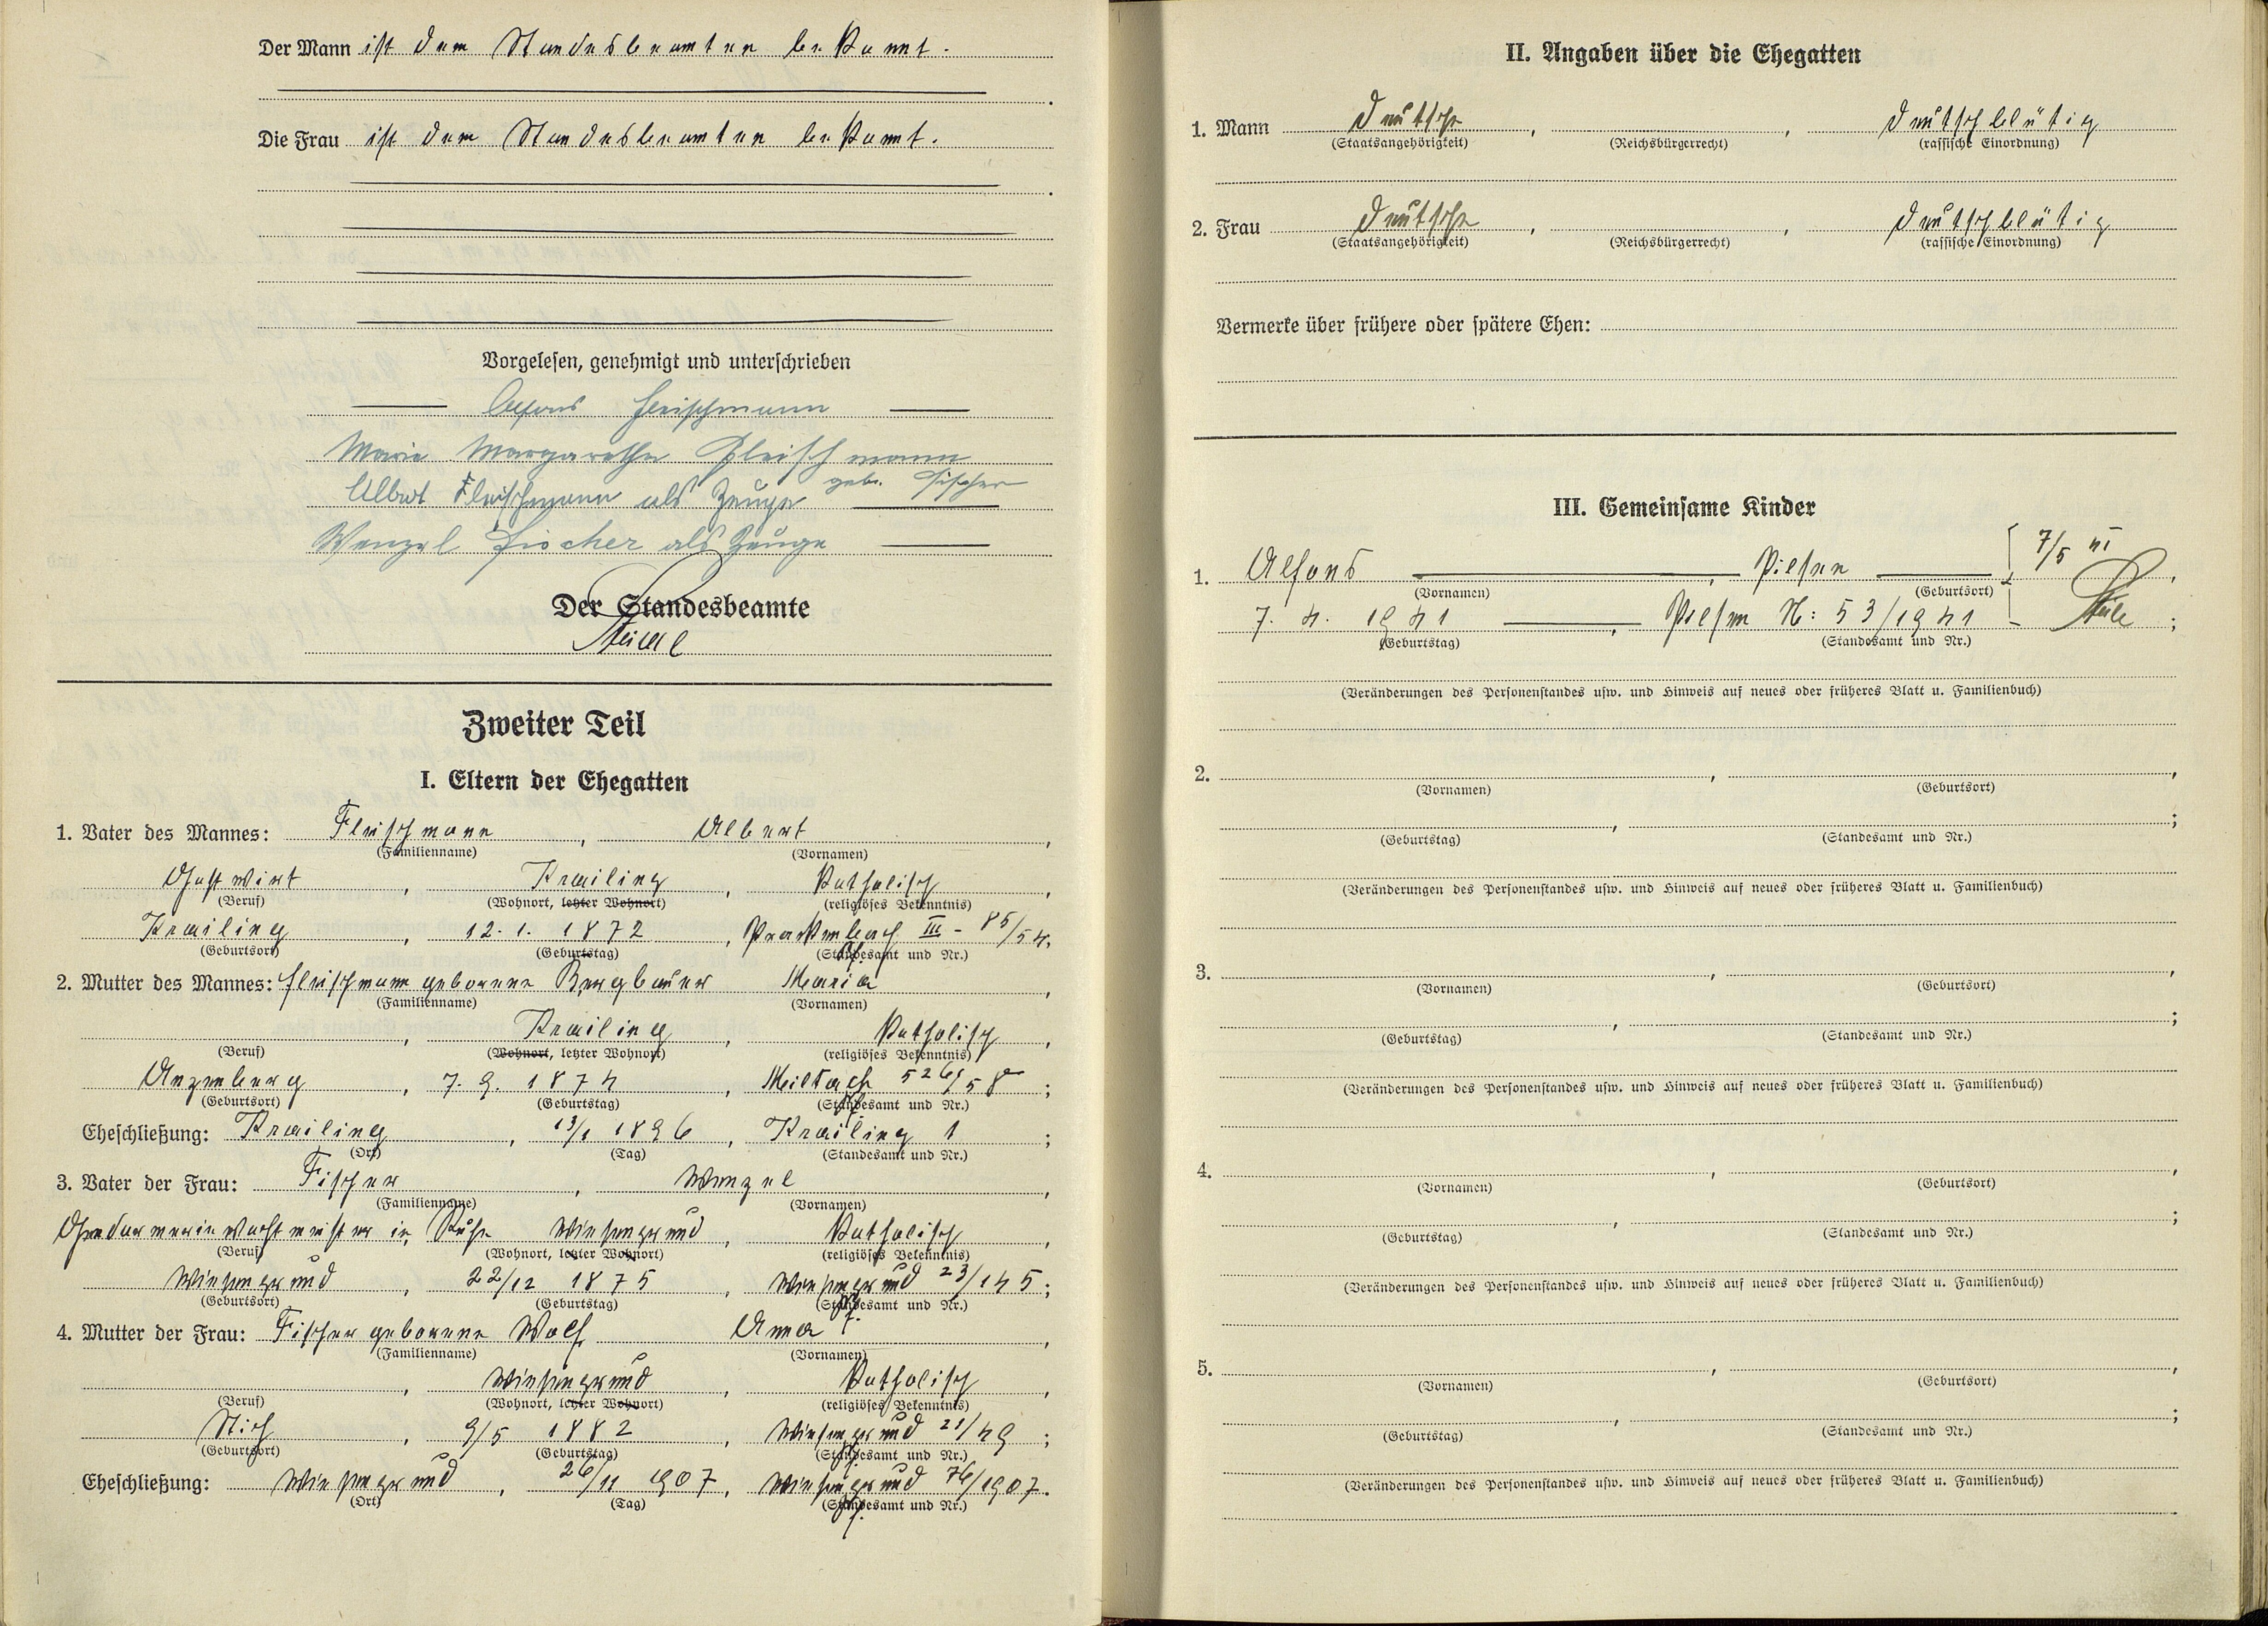 Der Mann ist dem Standesbeamten bekannt.
Die Frau ist dem Standesbeamten bekannt.
Vorgelesen, genehmigt und unterschrieben
Alfons Fleischmann
Marie Margarethe Fleischmann
geb. Fischer
Albert Fleischmann als Zeuge
Wenzel Fischer als Zeuge
Der Standesbeamte
Zweiter Teil
I. Eltern der Ehegatten
1. Vater des Mannes: Fleischmann, Albert,
(Familienname) (Vornamen)
Gastwirt, Krailing, katholisch,
(Beruf) (Wohnort, letzter Wohnort) (religiöses Bekenntnis)
Krailing, 12. 1. 1872, Prackenbach III - 85/54.
(Geburtsort) (Geburtstag) (Standesamt und Nr.)
2. Mutter des Mannes: Fleischmann geborene Bergbauer Maria,
(Familienname) (Vornamen)
, Krailing, katholisch,
(Beruf) (Wohnort, letzter Wohnort) (religiöses Bekenntnis)
Anzenberg, 7. 9. 1874, Miltach 526/58;
(Geburtsort) (Geburtstag) (Standesamt und Nr.)
Eheschließung: Krailing, 13/1 1896, Krailing 1;
(Ort) (Tag) (Standesamt und Nr.)
3. Vater der Frau: Fischer, Wenzel,
(Familienname) (Vornamen)
Gendarmeriewachtmeister in Ruhe Wiesengrund, katholisch,
(Beruf) (Wohnort, letzter Wohnort) (religiöses Bekenntnis)
Wiesengrund, 22/12 1875, Wiesengrund 23/145;
(Geburtsort) (Geburtstag) (Standesamt und Nr.)
4. Mutter der Frau: Fischer geborene Wolf Anna,
(Familienname) (Vornamen)
, Wiesengrund, katholisch,
(Beruf) (Wohnort, letzter Wohnort) (religiöses Bekenntnis)
Stich, 9/5 1882, Wiesengrund 21/49;
(Geburtsort) (Geburtstag) (Standesamt und Nr.)
Eheschließung: Wiesengrund, 26/11 1907, Wiesengrund 76/1907.
(Ort) (Tag) (Standesamt und Nr.)
II. Angaben über die Ehegatten
1. Mann Deutsche, , deutschblütig
(Staatsangehörigkeit) (Reichsbürgerrecht) (rassische Einordnung)
2. Frau Deutsche, , deutschblütig
(Staatsangehörigkeit) (Reichsbürgerrecht) (rassische Einordnung)
Vermerke über frühere oder spätere Ehen:
III. Gemeinsame Kinder
7/5 41
1. Alfons, Pilsen,
(Vornamen) (Geburtsort)
7. 4. 1941, Pilsen N: 53/1941;
(Geburtstag) (Standesamt und Nr.)
(Veränderungen des Personenstandes usw. und Hinweis auf neues oder früheres Blatt u. Familienbuch)
2. , ,
(Vornamen) (Geburtsort)
, ;
(Geburtstag) (Standesamt und Nr.)
(Veränderungen des Personenstandes usw. und Hinweis auf neues oder früheres Blatt u. Familienbuch)
3. , ,
(Vornamen) (Geburtsort)
, ;
(Geburtstag) (Standesamt und Nr.)
(Veränderungen des Personenstandes usw. und Hinweis auf neues oder früheres Blatt u. Familienbuch)
4. , ,
(Vornamen) (Geburtsort)
, ;
(Geburtstag) (Standesamt und Nr.)
(Veränderungen des Personenstandes usw. und Hinweis auf neues oder früheres Blatt u. Familienbuch)
5. , ,
(Vornamen) (Geburtsort)
, ;
(Geburtstag) (Standesamt und Nr.)
(Veränderungen des Personenstandes usw. und Hinweis auf neues oder früheres Blatt u. Familienbuch)